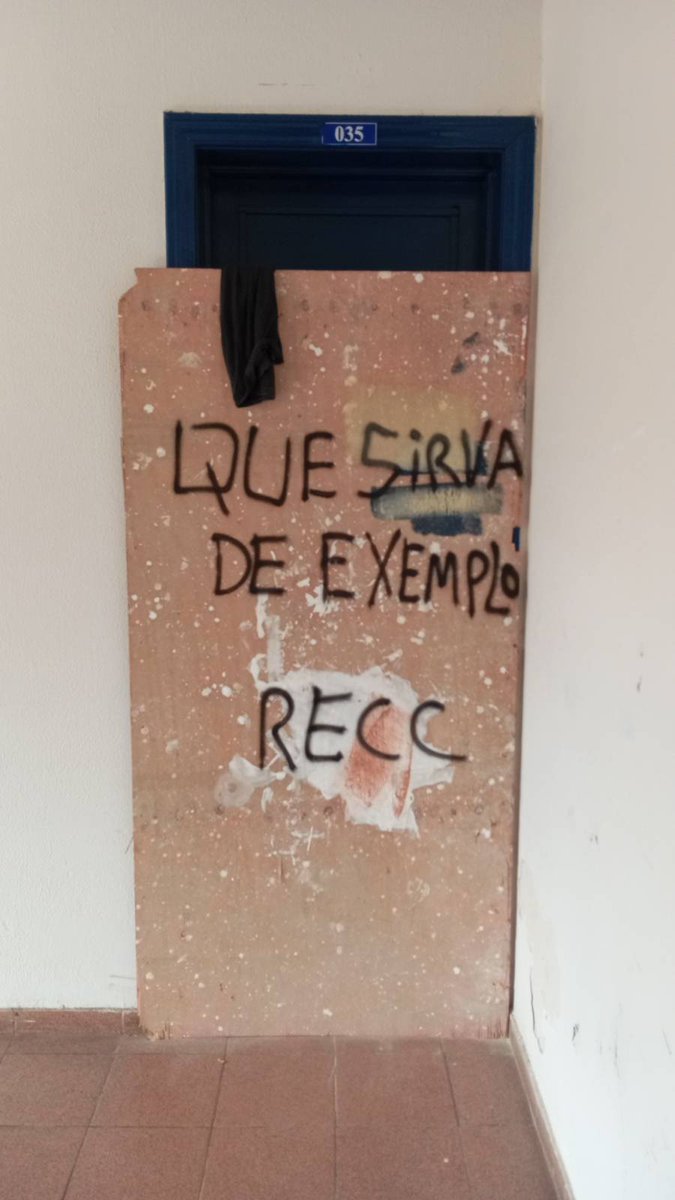 035
QUE SiRVA
DE EXEMPLO
RECC